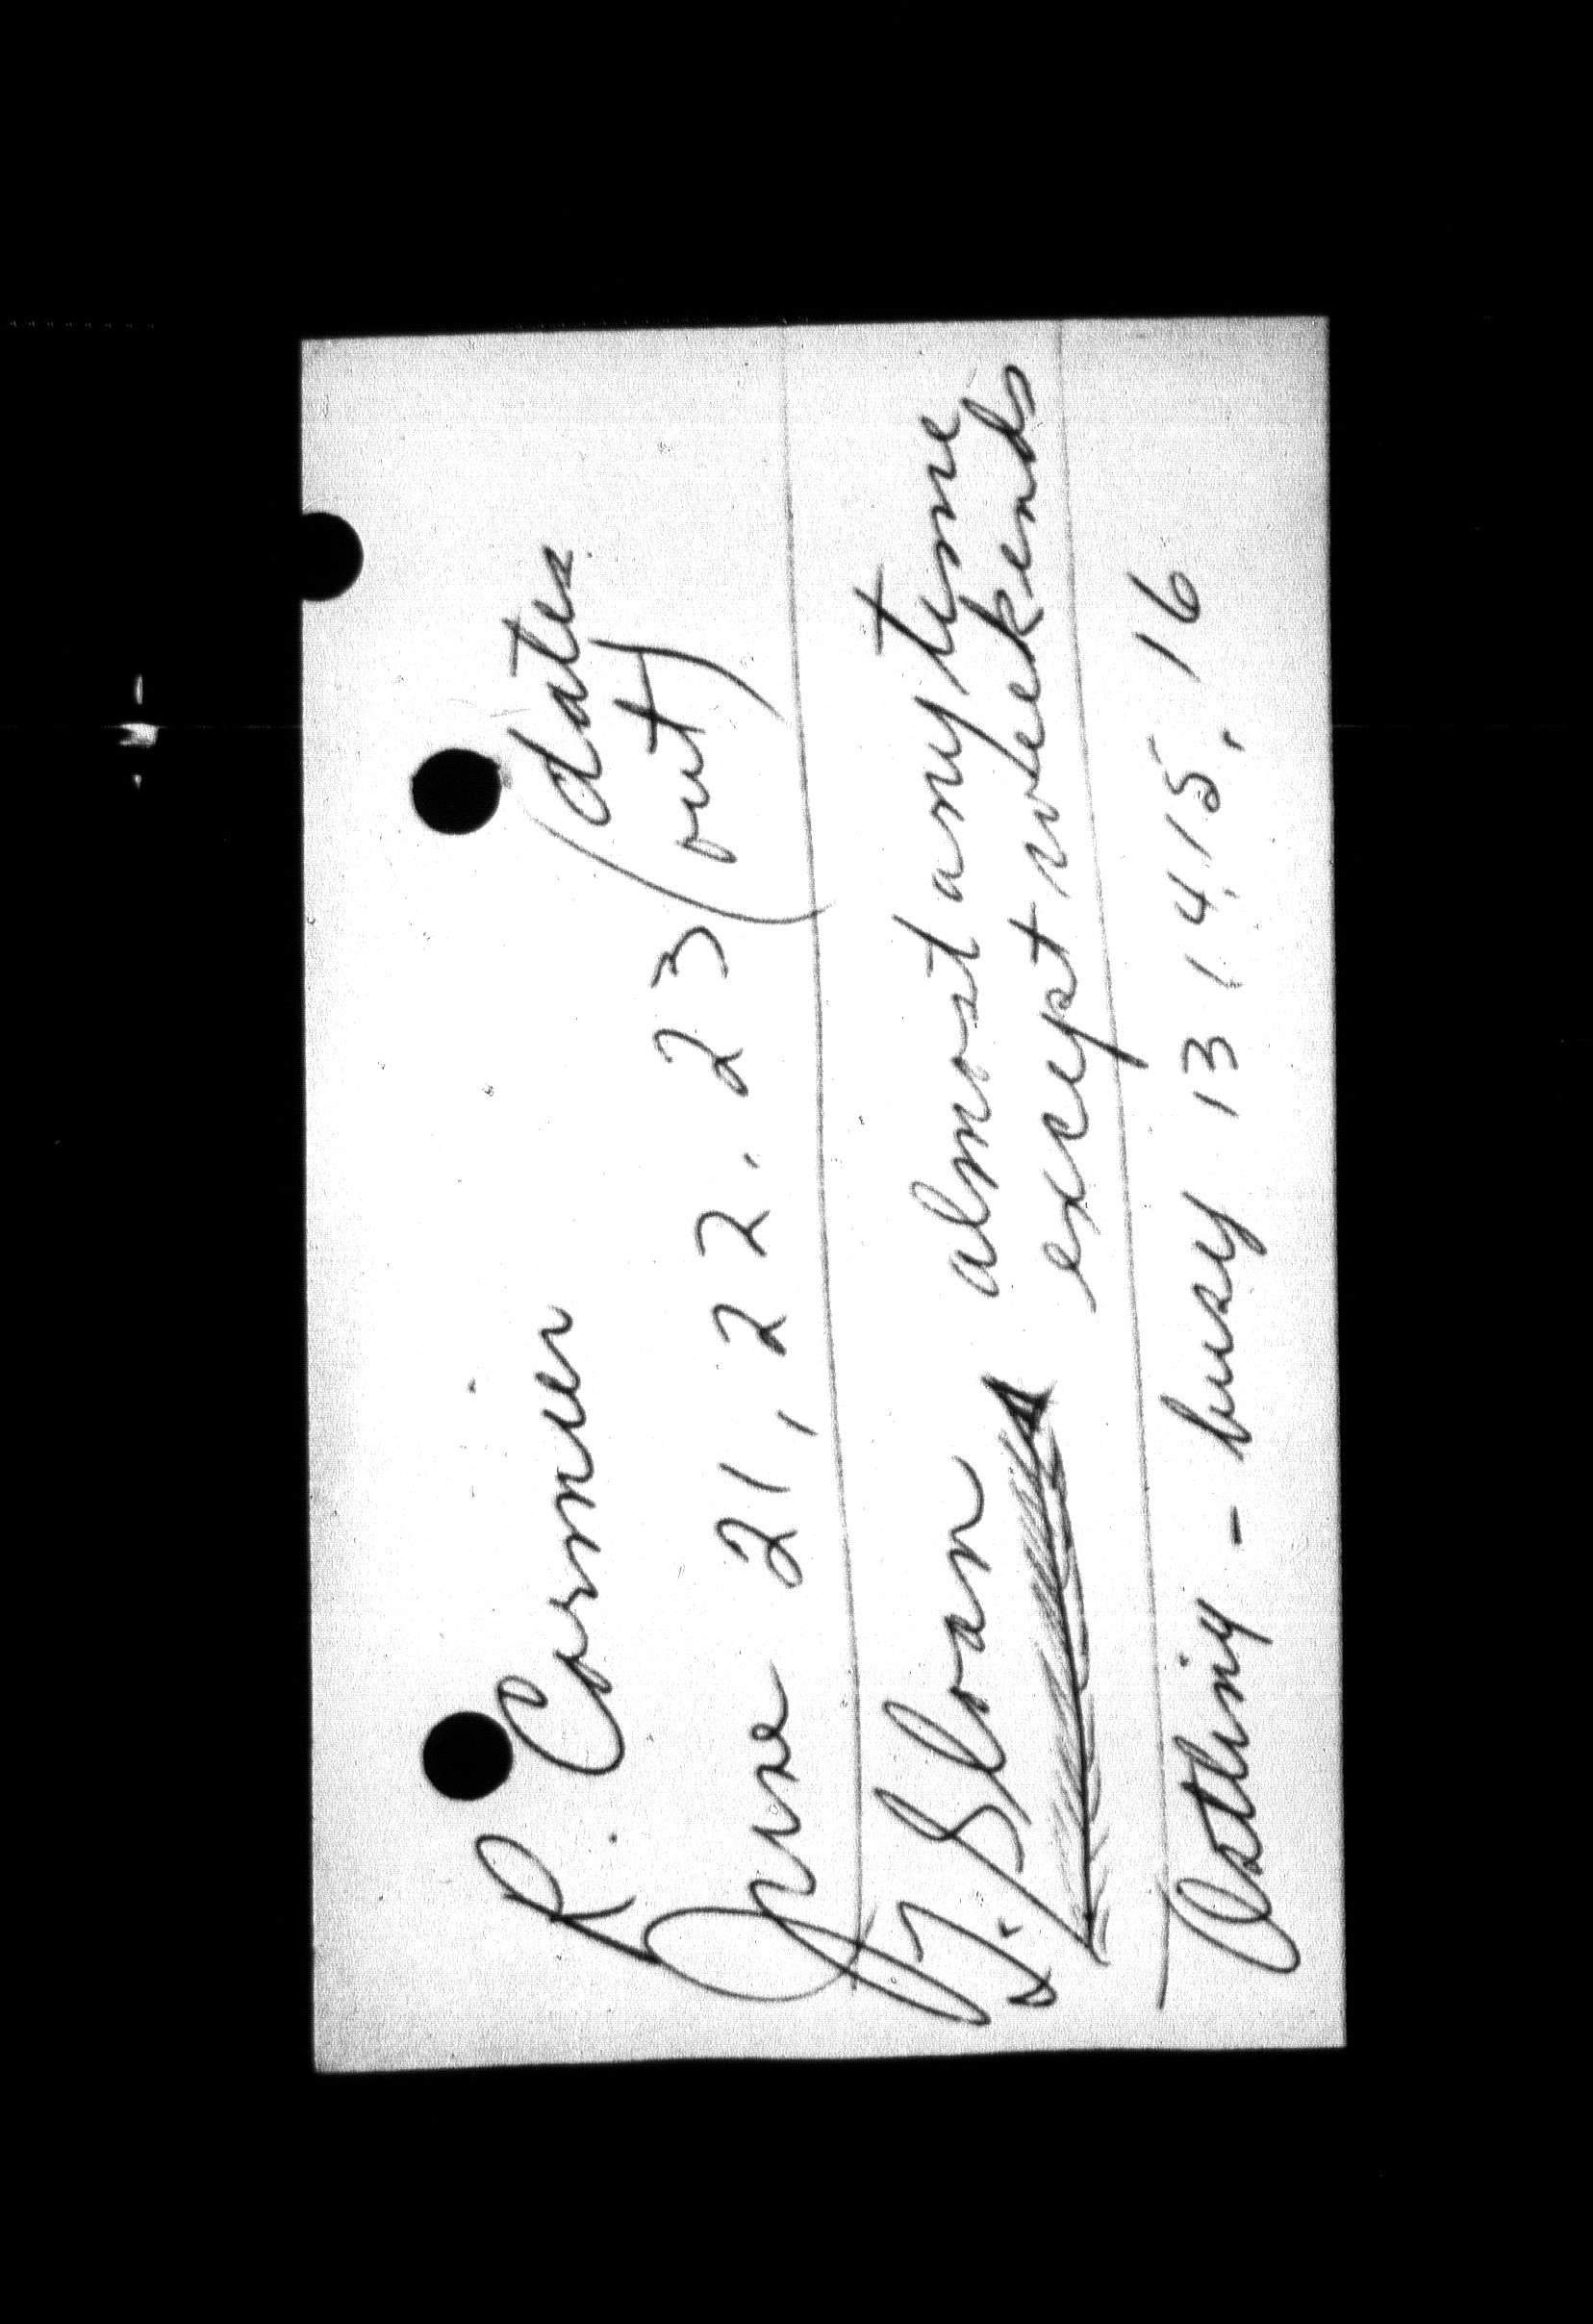 R. Cormier
June 21, 22. 23 (dates out)
Sloan almost anytime
except weekends
- busy 13 14, 15, 16